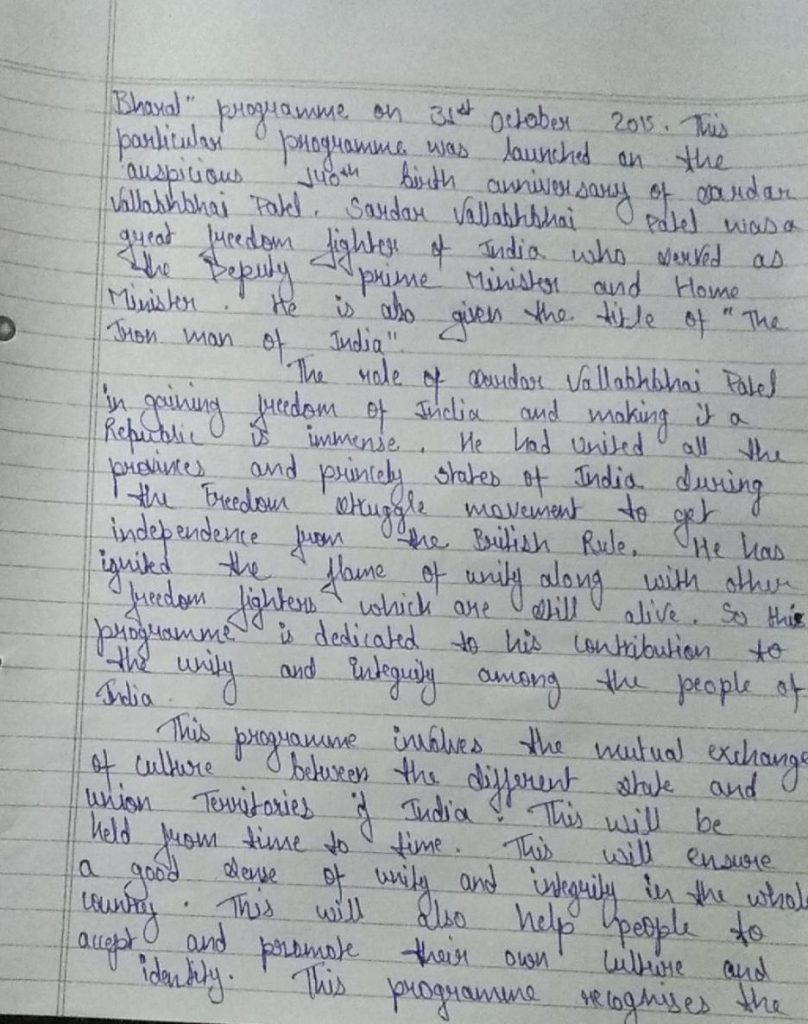 Bharat" programme on 31st October 2015. This
particular programme was launched on the
auspicious 140th birth anniversary of sardar
Vallabhbhai Patel. Sardar Vallabhbhai Patel was a
great freedom fighter of India who served as
the Deputy prime Minister and Home
Minister. He is also given the title of "The
Iron man of India".
The role of sardar Vallabhbhai Patel
in gaining freedom of India and making it a
Republic is immense. He had united all the
provinces and princely states of India during
the Freedom struggle movement to get
independence from the British Rule. He has
ignited the flame of unity along with other
freedom fighters which are still alive. So this
programme is dedicated to his contribution to
the unity and Integuity among the people of
India.
This programme involves the mutual exchange
of culture between the different state and
union Territories of India. This will be
held from time to time. This will ensure
a good sense of unity and integuity in the whole
country. This will also help people to
accept and promote their own culture and
identity. This programme recognises the